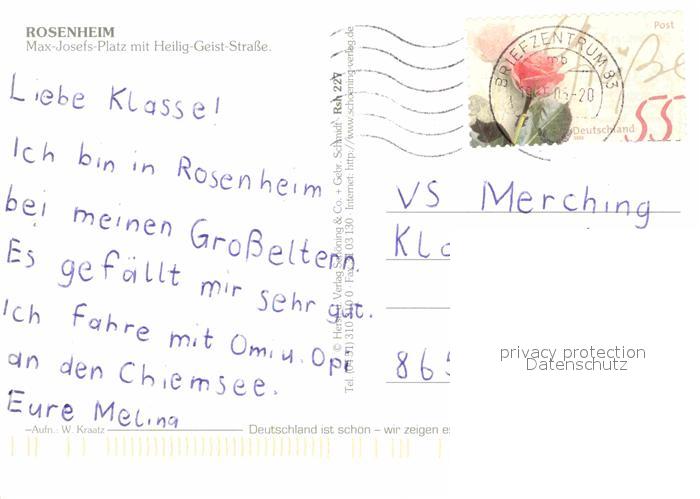 ROSENHEIM
Max-Josefs-Platz mit Heilig-Geist-Straße.
Liebe Klasse!
Ich bin in Rosenheim
bei meinen Großeltern.
Es gefällt mir sehr gut.
Ich fahre mit Omi u. Opi
an den Chiemsee.
Eure Melina
Aufn.: W. Kraatz
Deutschland ist schön – wir zeigen es
Rsh 227
Internet: http://www.schoening-verlag.de
Post
BRIEFZENTRUM 83
Deutschland
55
VS Merching
Kla
865
privacy protection
Datenschutz